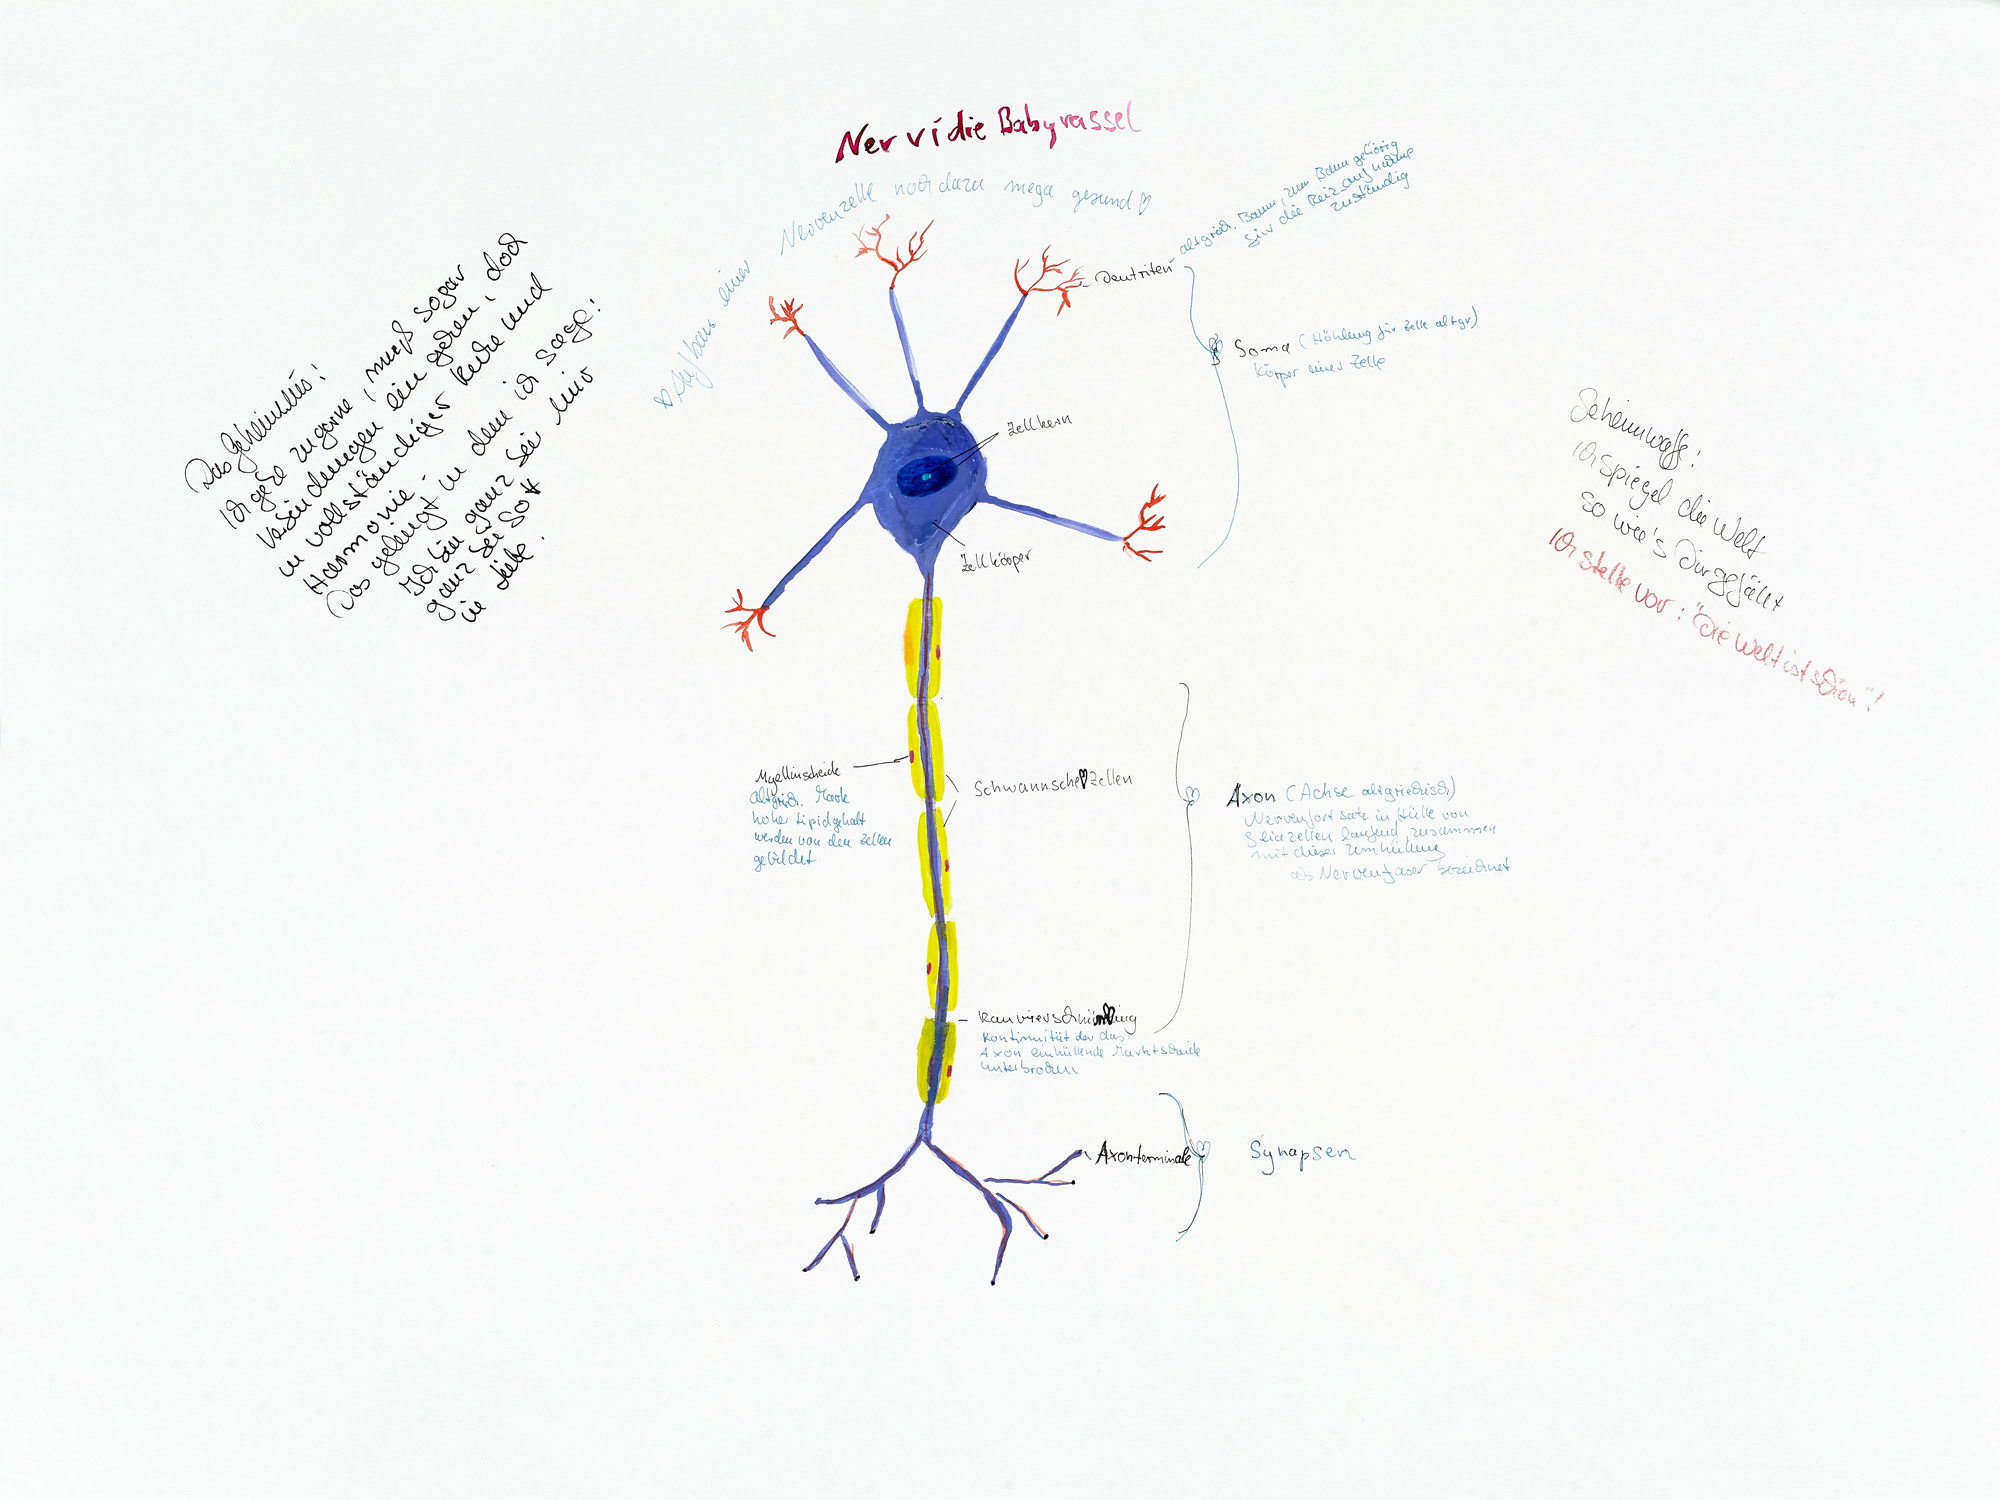 Nervi die Babyrassel
♡ Aufbau einer Nervenzelle noch dazu mega gesund ♡
Das Geheimnis!
Ich gehe zu gerne, muß sogar
Verbindungen ein gehen, doch
in vollständiger Ruhe und
Harmonie.
Das gelingt in dem ich sage:
Ich bin ganz bei mir
ganz bei Gott
in Liebe.
Dentriten
altgriech. Baum, zum Baum gehörig
für die Reizaufnahme
zuständig
Soma (Höhlung für Zelle altgr)
Körper einer Zelle
Zellkern
Zellkörper
Geheimwaffe!
Ich spiegel die Welt
so wie's Dir gefällt
Ich stelle vor: "Die Welt ist schön"!
Myellinscheide
altgriech. Mark
hoher Lipidgehalt
werden von den Zellen
gebildet
Schwannsche♡Zellen
Axon (Achse altgriechisch)
Nervenfortsatz in Hülle von
Gliazellen laufend, zusammen
mit dieser Umhüllung
als Nervenfaser bezeichnet
Kontinuität der das
Axon einhüllende Marktscheide
unterbrochen
Axonterminale
Synapsen